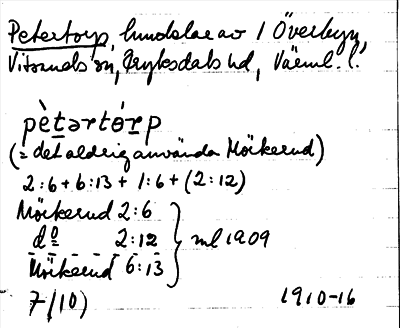 Petertorp, lundslav av 1 Överbyn,
Vitsands sn, Fryksdals hd, Värml. l.
pètərtórp
(= det aldrig använda Mörkerud)
2:6 + 6:13 + 1:6 + (2:12)
Mörkerud 2:6
do 2:12 } ml 1909
Mörkerud 6:13
7/10) 1910-16